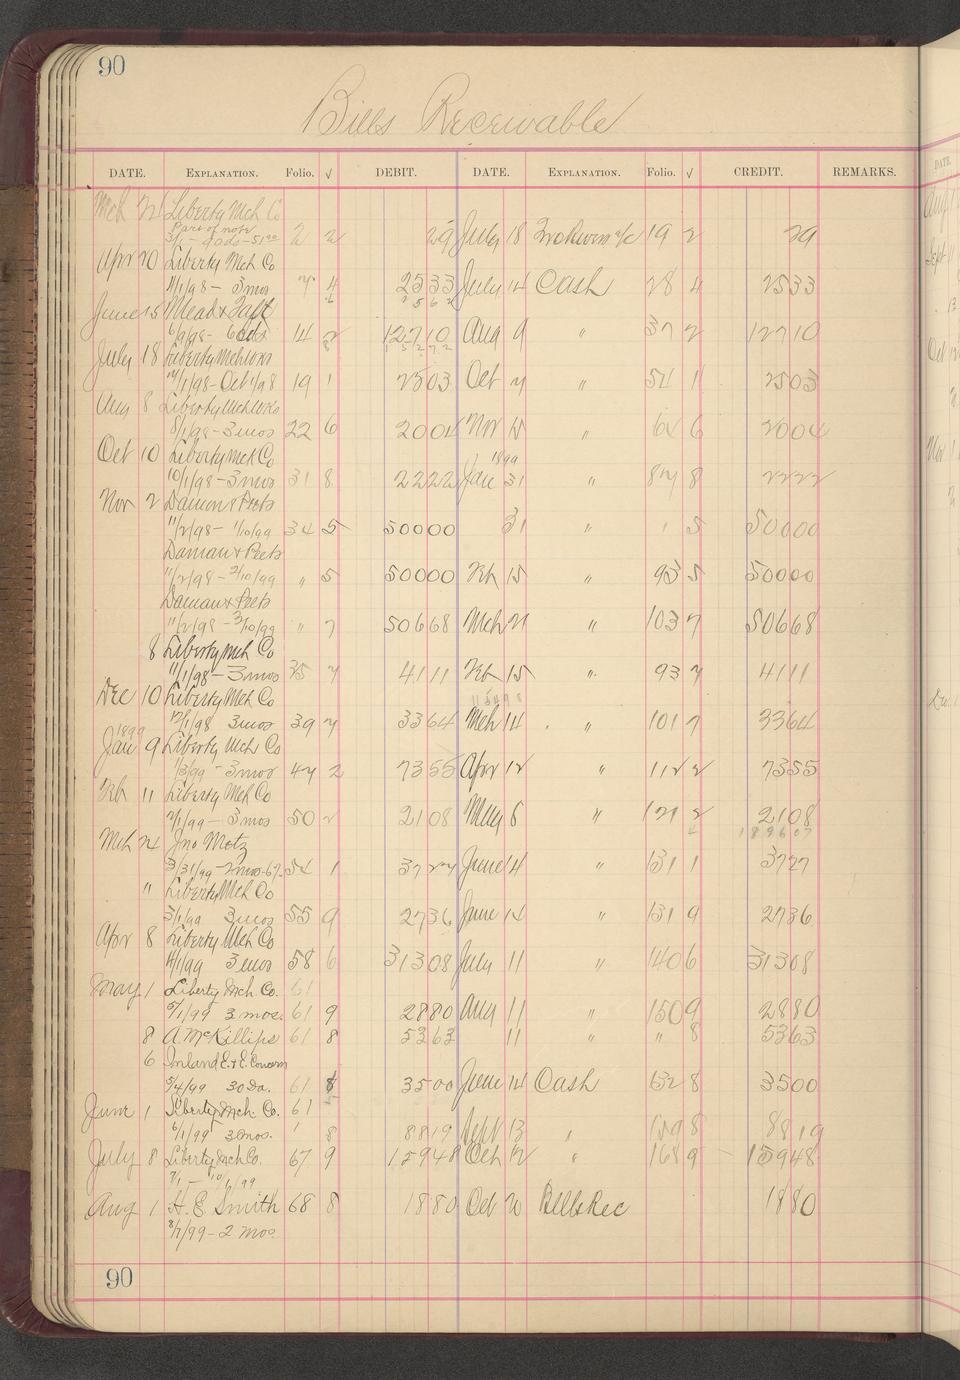 90
Bills Receivable
DATE. EXPLANATION. Folio. √ DEBIT. DATE. EXPLANATION. Folio. √ CREDIT. REMARKS.
Mch 21 Liberty Mch Co
Part of note
2 2 29 July 18 19 2 29
Apr 20 Liberty Mch Co
4/1/98 - 3 mos 7 4 2533 July 14 Cash 28 4 2533
June 15 Mead & Taft
6/9/98 - 60ds 14 2 12710 Aug 9 " 37 2 12710
July 18 Liberty Mch Wks
7/1/98 - Oct 1/98 19 1 2503 Oct 7 " 54 1 2503
Aug 8 Liberty Mch Wks
8/1/98 - 3 mos 22 6 2004 Nov 15 " 64 6 2004
Oct 10 Liberty Mch Co 1899
10/1/98 - 3 mos 31 8 2222 Jan 31 " 87 8 2222
Nov 2 Damon & Peets
11/2/98 - 1/10/99 34 5 50000 31 " " 5 50000
Damon & Peets
11/2/98 - 2/10/99 " 5 50000 Feb 15 " 93 5 50000
Damon & Peets
11/2/98 - 3/10/99 " 7 50668 Mch 21 " 103 7 50668
8 Liberty Mch Co
11/1/98 - 3 mos 35 7 4111 Feb 15 " 93 7 4111
Dec 10 Liberty Mch Co
12/1/98 3 mos 39 7 3364 Mch 14 " 101 7 3364
1899
Jan 9 Liberty Mch Co
1/3/99 - 3 mos 44 2 7355 Apr 12 " 112 2 7355
Feb 11 Liberty Mch Co
2/1/99 - 3 mos 50 2 2108 May 6 " 121 2 2108
189607
Mch 24 Jno Motz
3/31/99 - 2 mos - 54 1 3727 June 4 " 131 1 3727
" Liberty Mch Co
3/1/99 3 mos 55 9 2736 June 14 " 131 9 2736
Apr 8 Liberty Mch Co
4/1/99 3 mos 58 6 31308 July 11 " 140 6 31308
May 1 Liberty Mch Co. 61
5/1/99 3 mos. 61 9 2880 Aug 11 " 150 9 2880
8 A. McKillips 61 8 5363 11 " " 8 5363
6 Inland E. & E. Concern
5/4/99 30 Da. 61 8 3500 June 14 Cash 132 8 3500
June 1 Liberty Mch. Co. 61
6/1/99 3 mos. " 8 8819 Sept 13 " 159 8 8819
July 8 Liberty Mch Co. 67 9 15948 Oct 12 " 168 9 15948
7/1 - 10/1/99
Aug 1 H. E Smith 68 8 1880 Oct 20 Bills Rec 1880
8/1/99 - 2 mos.
90